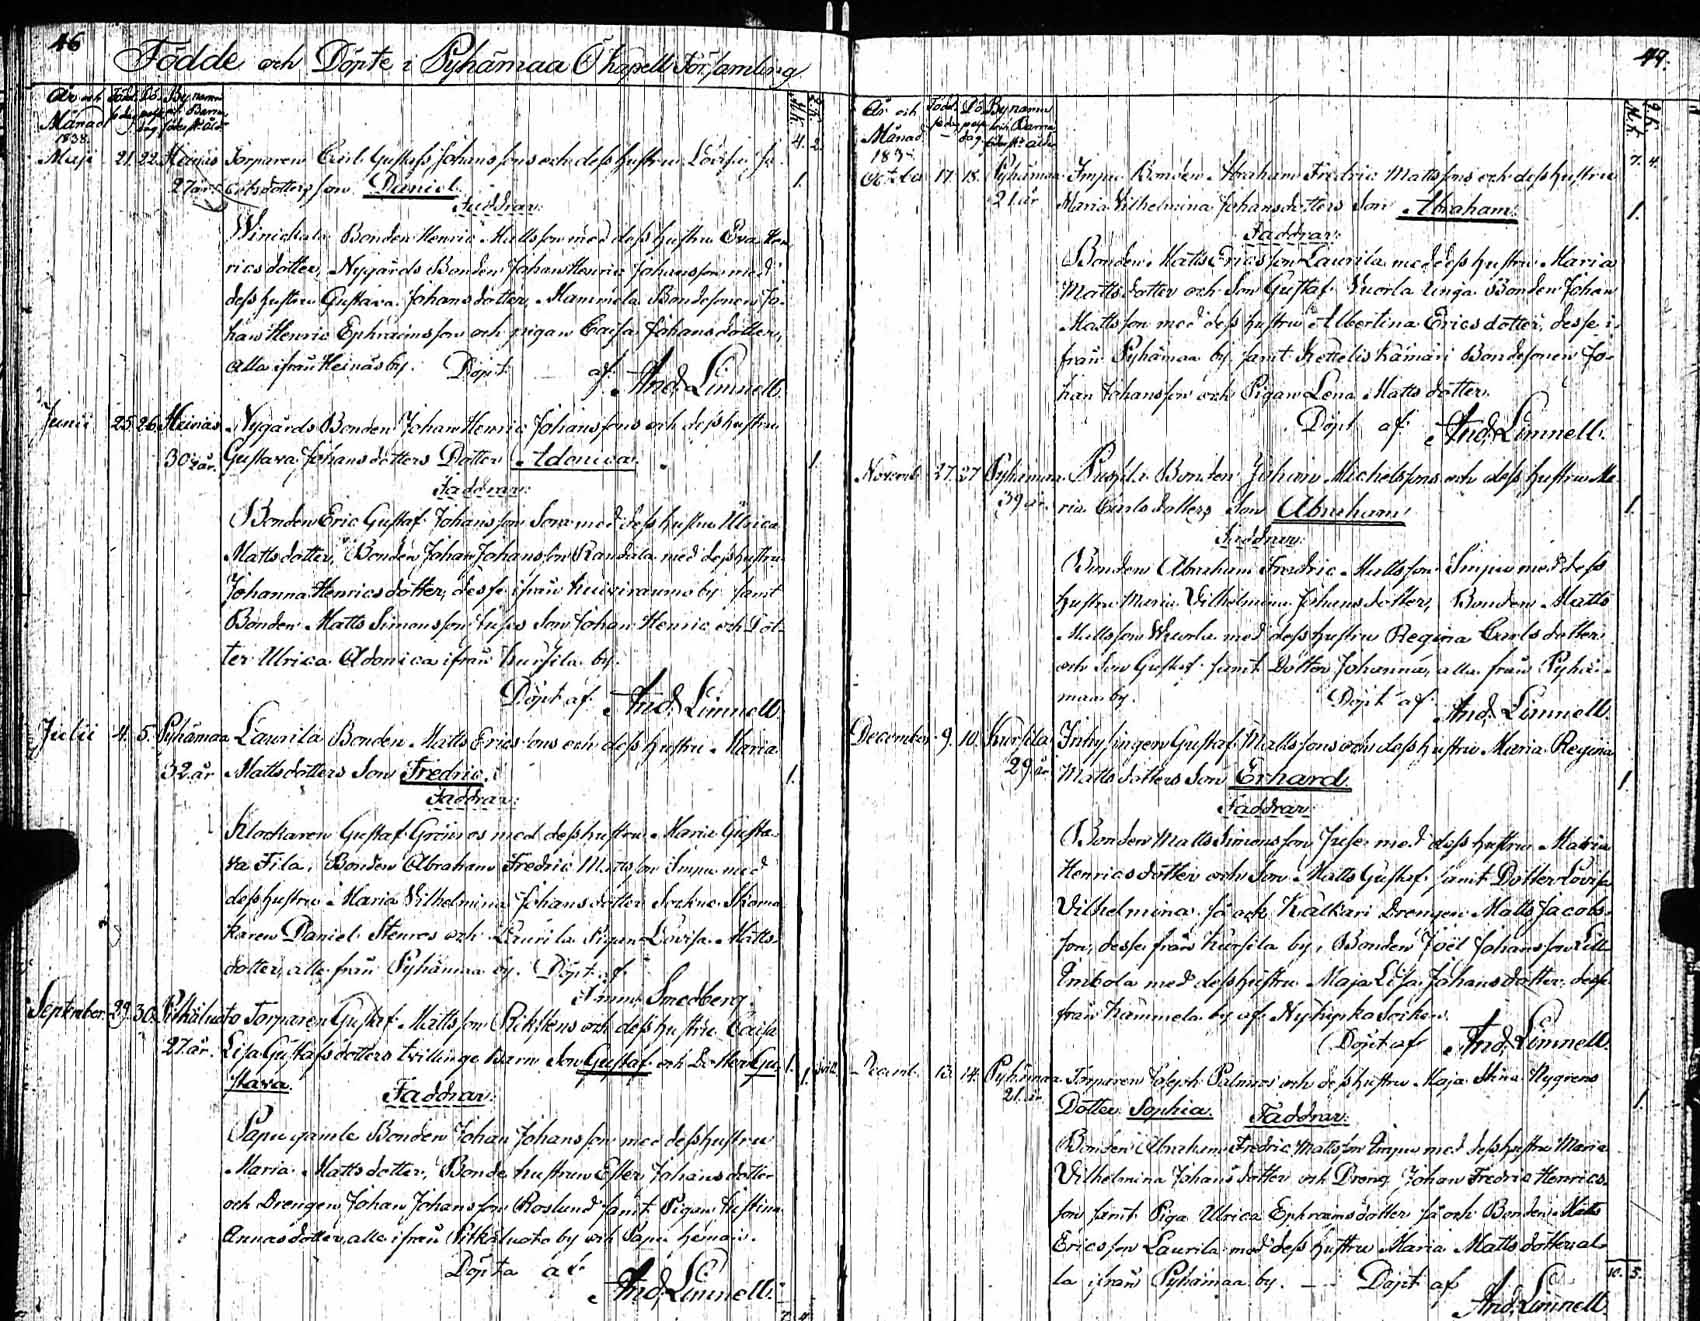 46
Födde och Döpte i Pyhämaa Ö kapell Församling
År och Månad 1838.
Född dag
Döpelse dag
Bynamn och Barnaföderskans ålder
M.k. Q.k.
4. 2.
Maji 21. 22. Heinäs Torparen Carl Gustafs Johanssons och dess hustru Lovisa Ja-
27 år. cobsdotters son Daniel. 1.
Faddrar:
Winickala Bonden Henric Mattsson med dess hustru Eva Hen
ricsdotter, Nygårds Bonden Johan Henric Johansson med
dess hustru Gustava Johansdotter, Mammela Bondesonen Jo-
han Henric Ephraimsson och pigan Caisa Johansdotter,
alla ifrån Heinäs by. Döpt af And. Limnell.
Junii 25. 26. Heinäs Nygårds Bonden Johan Henric Johanssons och dess hustru
30 år. Gustava Johansdotters Dotter Adonica. 1.
Faddrar:
Bonden Eric Gustaf Johansson Sorra med dess hustru Ulrica
Mattsdotter, Bonden Johan Johansson Randala med dess hustru
Johanna Henricsdotter, desse ifrån Kuivirauma by samt
Bonden Matts Simonsson Juses son Johan Henric och Dot-
ter Ulrica Adonica ifrån Kursila by.
Döpt af And. Limnell
Julii 4. 5. Pyhämaa Laurila Bonden Matts Ericssons och dess hustru Maria
32 år Mattsdotters Son Fredric. 1.
Faddrar:
Klockaren Gustaf Grönros med dess hustru Maria Gusta-
va Fila, Bonden Abraham Fredric Mattsson Simpu med
dess hustru Maria Vilhelmina Johansdotter Sockne Skoma
karen Daniel Stenros och Laurila Pigan Lovisa Matts-
dotter, alla från Pyhämaa by. Döpt af
Imm. Smedberg.
September 29. 30. Pitkäluoto Torparen Gustaf Mattsson Riksstens och dess hustru Caisa
27 år. Lisa Gustafsdotters tvillinge barn Son Gustaf och Dotter Gu- 1. 1.
stava. Faddrar:
Papu gamle Bonden Johan Johansson med dess hustru
Maria Mattsdotter, Bonde hustrun Ester Johansdotter
och Drengen Johan Johansson Roslund samt Pigan Justina
Annasdotter, alla ifrån Pitkäluoto by och Papu heman.
Döpta af
And. Limnell.
7. 4.
49.
År och Månad 183
Född dag
Döpelse dag
Bynamn och Barnaföderskans ålder
M.k. Q.k.
7. 4.
October 17. 18. Pyhämaa Simpu Bonden Abraham Fredric Mattssons och dess hustru
21 år Maria Vilhelmina Johansdotters Son Abraham. 1.
Faddrar:
Bonden Matts Ericsson Laurila med dess hustru Maria
Mattsdotter och Son Gustaf Vuorla unga Bonden Johan
Mattsson med dess hustru Albertina Ericsdotter, desse i-
från Pyhämaa by, samt Kettelis hämäri Bondesonen Jo-
han Johansson och Pigan Lena Mattsdotter.
Döpt af: And. Limnell.
Novemb. 27. 27 Pyhämaa Bonden Johan Michelssons och dess hustru Ma
39 år. ria Carlsdotters Son Abraham. 1.
Faddrar:
Bonden Abraham Fredric Mattsson Simpu med dess
hustru Maria Vilhelmina Johansdotter, Bonden Matts
Mattsson Wuorla med dess hustru Regina Carlsdotter
och Son Gustaf samt Dotter Johanna, alla från Pyhä-
maa by. Döpt af And. Limnell.
December 9. 10. Kursila Inhysingen Gustaf Mattssons och dess hustru Maria Regina
29 år Mattsdotters Son Erhard. 1.
Faddrar:
Bonden Matts Simonsson Juse med dess hustru Maria
Henricsdotter och Son Matts Gustaf samt Dotter Lovisa
Vilhelmina så ock Kalkari Drengen Matts Jacobs-
son, desse från Kursila by, Bonden Joël Johansson Lill
Imbola med dess hustru Maja Lisa Johansdotter, desse
från Kammela by af Nykyrka Socken.
Döpt af And. Limnell.
Decemb. 13. 14. Pyhämaa Torparen Joseph Palmros och dess hustru Maja Stina Nygrens
21 år Dotter Sophia. Faddrar: 1.
Bonden Abraham Fredric Mattsson Simpu med dess hustru Maria
Vilhelmina Johansdotter och Dreng Johan Fredric Henrics-
son samt Piga Ulrica Ephraimsdotter så ock Bonden Matts
Ericsson Laurila med dess hustru Maria Mattsdotter al-
la ifrån Pyhämaa by. — Döpt af 10. 5.
And. Limnell.